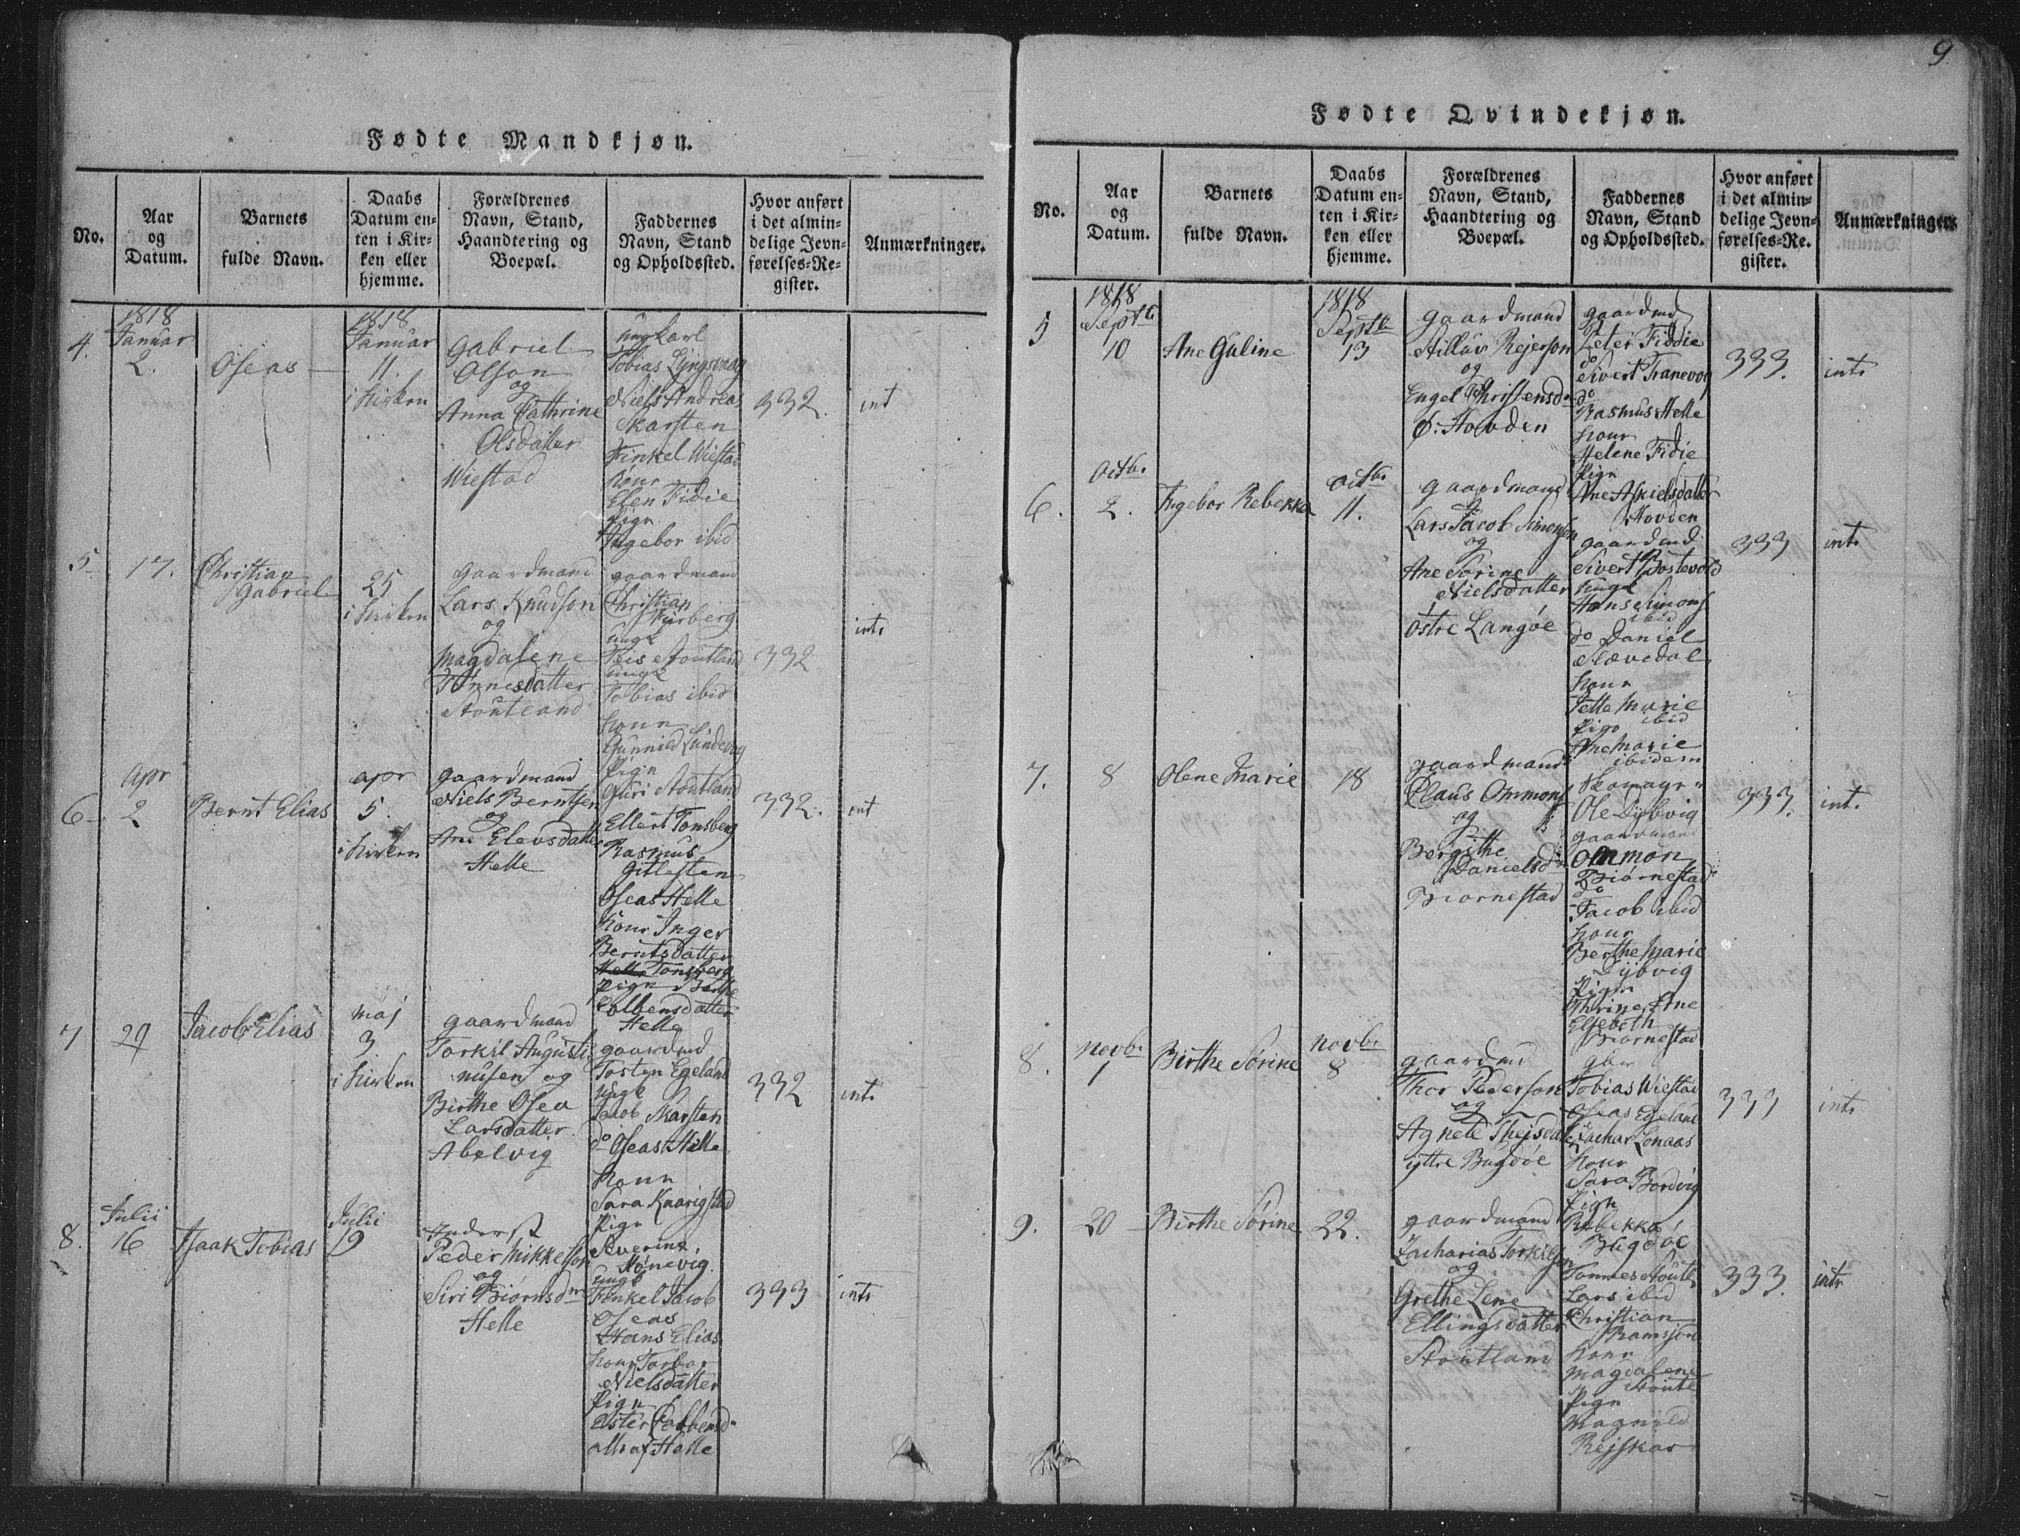 9.
Fødte Mandkjøn.
No.
Aar
og
Datum.
Barnets
fulde Navn.
Daabs
Datum en-
ten i Kir-
ken eller
hjemme.
Forældrenes
Navn, Stand,
Haandtering og
Boepæl.
Faddernes
Navn, Stand
og Opholdssted.
Hvor anført
i det almin-
delige Jevn-
førelses-Re-
gister.
Anmærkninger.
4.
1818
Januar
2.
Oseas
1818
Januar
11.
i Kirken
Gabriel
Olson
og
Anna Cathrine
Olsdatter
Wiestad
ungkarl
Tobias Lÿngsvaag
Niels Andreas
Skarsten
Finkel Wiestad
Konr
Elen Fidie
Pign
Ingebor ibid
332.
int
5
17.
Christian
Gabriel
25
i Kirken
gaardmand
Lars Knudson
og
Magdalene
Tønnesdatter
Stoutland
gaardmand
Christian
ungk
Teis Stoutland
ungk
Tobias ibid
Konn
Gunnild Lundevog
Pign
Guri Stoutland
332
int.
6
apr
2
Bernt Elias
apr
5.
i Kirken
gaardmand
Niels Berntsen
og
Ane Elevsdatter
Helle
Ellert Tonsberg
Rasmus
Gitlesten
Oseas Helle
Konr Inger
Berntsdatter
Helle Tonsberg
Pign Berthe
Colbensdatter
Helle
332.
int
7
29
Jacob Elias
Maj
3.
i Kirken
gaardmand
Torkil Augusti
nusen og
Birthe Osea
Larsdatter
Abelvig
gaardmd
Tosten Egeland
ungk
Jacob Skarsten
do Oseas Helle
Konn
Sara Kaarigstad
Pign
Severine
Stønevig.
332
int.
8.
Julii
16
Isaak Tobias
Julii
19
Inderst
Peder Mikkelson
og
Siri Biørnsdtr
Helle
ungk
Finkel Jacob
Oseas
Hans Elias
Konr Torbor
Nielsdatter
Pign
Ester Colbensd
alle af Helle
333
int.
Fødte Qvindekjøn.
No.
Aar
og
Datum.
Barnets
fulde Navn.
Daabs
Datum en-
ten i Kir-
ken eller
hjemme.
Forældrenes
Navn, Stand,
Haandtering og
Boepæl.
Faddernes
Navn, Stand
og Opholdssted.
Hvor anført
i det almin-
delige Jevn-
førelses-Re-
gister.
Anmærkninger.
5
1818
Septb.
10
Ane Guline
1818
Septb.
13
gaardmand
Stilluv Rejerson
og
Engel Chrissensdr
Ø. Hovden
gaardmd
Peter Fidie
do
Sivert Tranevog
do
Rasmus Helle
Konr
Helene Fidie
Pign
Ane Askielsdatter
Hovden
333.
int.
6.
Octb.
2.
Ingebor Rebekka
Octb.
11.
gaardmand
Lars Jacob Simonsen
og
Ane Sørine
Nielsdatter
østre Langøe
gaardmd
Sivert Bostevold
ungk
Hans Simons
ibid
do Daniel
Slævedal
Konr
Jelle Marie
ibid
Pign
Ane Marie
ibidem
333
int.
7.
8
Olene Marie
18
gaardmand
Claus Ommons
og
Bergithe
Danielsdr
Biørnestad
Skomagr
Ole Dÿbvig
gaardmand
Ommon
Biørnestad
do
Jacob ibid
Konr
Berthe Marie
Dÿbvig
Pign
Thrine, Ane
Elsebeth
Biørnestad
333.
int.
8.
Novb.
1
Birthe Sørine
Novb.
8
gaardmd
Thor Pederson
og
Agnete Thejsdatter
ÿttre Bugdøe
gbr
Tobias Wiestad
Oseas Egeland
Zachar Lonaas
Konr
Sara Bordvig
Pign
Rebekka
Bugdøe
333
int.
9.
20
Birthe Sørine
22.
gaardmand
Zacharias Torkilsen
og
Grethe Lene
Ellingsdatter
Stoutland
Tønnes Stoutl
Lars ibid
Christian
Ramsjon
Konr
Magdalene
Stoutl
Pign
Magnild
Rejskar
333.
int.